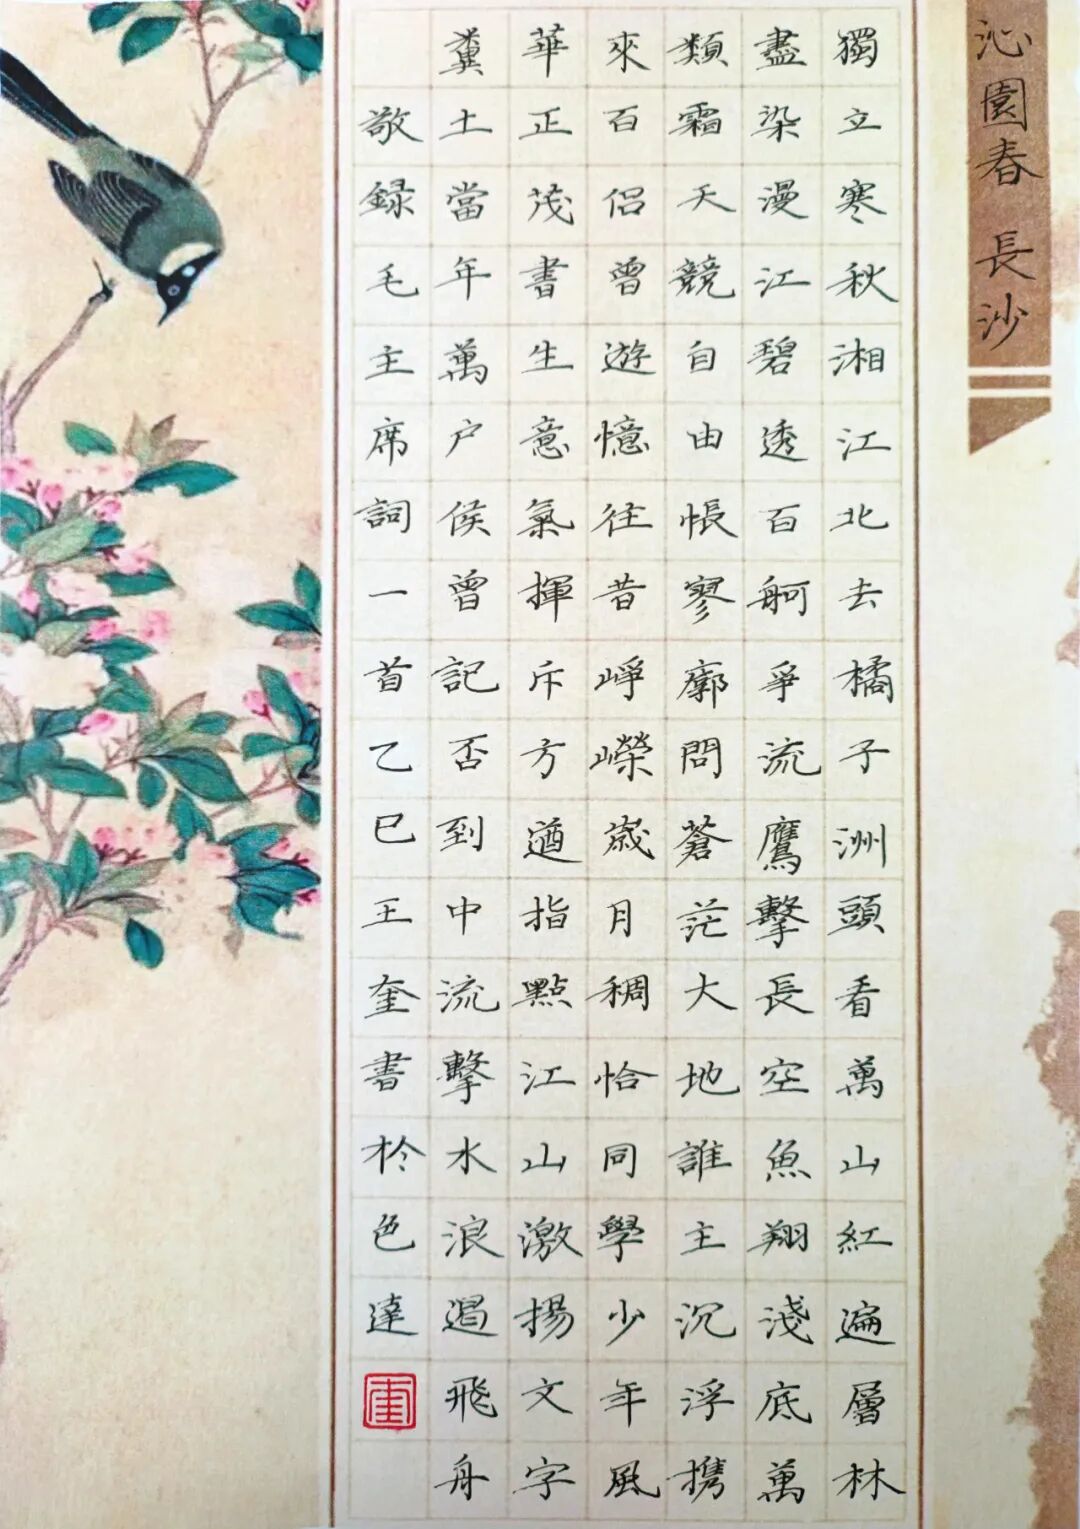 沁園春 長沙
獨立寒秋湘江北去橘子洲頭看萬山紅遍層林
盡染漫江碧透百舸爭流鷹擊長空魚翔淺底萬
類霜天競自由悵寥廓問蒼茫大地誰主沉浮携
來百侶曾遊憶往昔崢嶸歲月稠恰同學少年風
華正茂書生意氣揮斥方遒指點江山激揚文字
糞土當年萬户侯曾記否到中流擊水浪遏飛舟
敬録毛主席詞一首乙巳王奎書扵色達